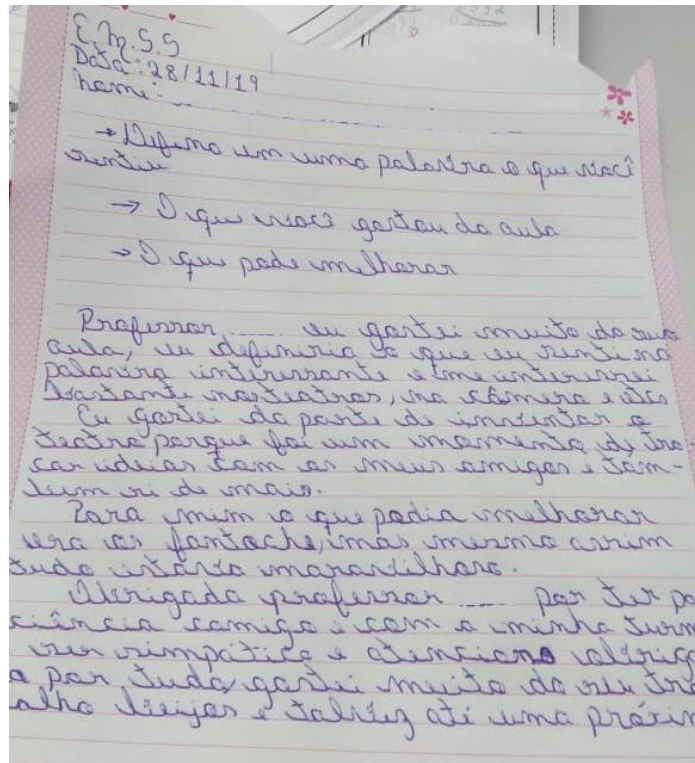 E.M.S.S
Data: 28/11/19
Nome:
→ Defina em uma palavra o que você
sentiu
→ O que você gostou da aula
→ O que pode melhorar
Professor ..... eu gostei muito da sua
aula, eu definiria o que eu senti na
palavra interessante e me interessei
bastante nos teatros, na câmera e etc
Eu gostei da parte de inventar o
teatro porque foi um momento de tro
car ideias com os meus amigos e tam-
bem ri de mais.
Para mim o que podia melhorar
era os fantoche, mas mesmo assim
tudo estava maravilhoso.
Obrigada professor .... por ter pa
ciência comigo e com a minha turm
ser simpático e atencioso obriga
a por tudo, gostei muito do seu tra
alho beijos e talvez até uma próxim